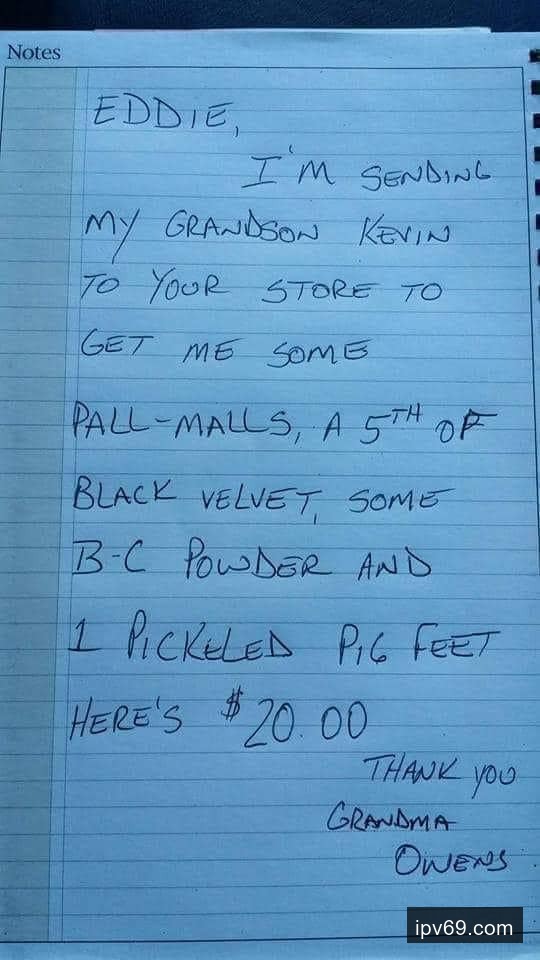 Notes
EDDIE,
I'M SENDING
MY GRANDSON KEVIN
TO YOUR STORE TO
GET ME SOME
PALL-MALLS, A 5TH OF
BLACK VELVET, SOME
B-C POWDER AND
1 PICKELED PIG FEET
HERE'S $20.00
THANK YOU
GRANDMA
OWENS
ipv69.com